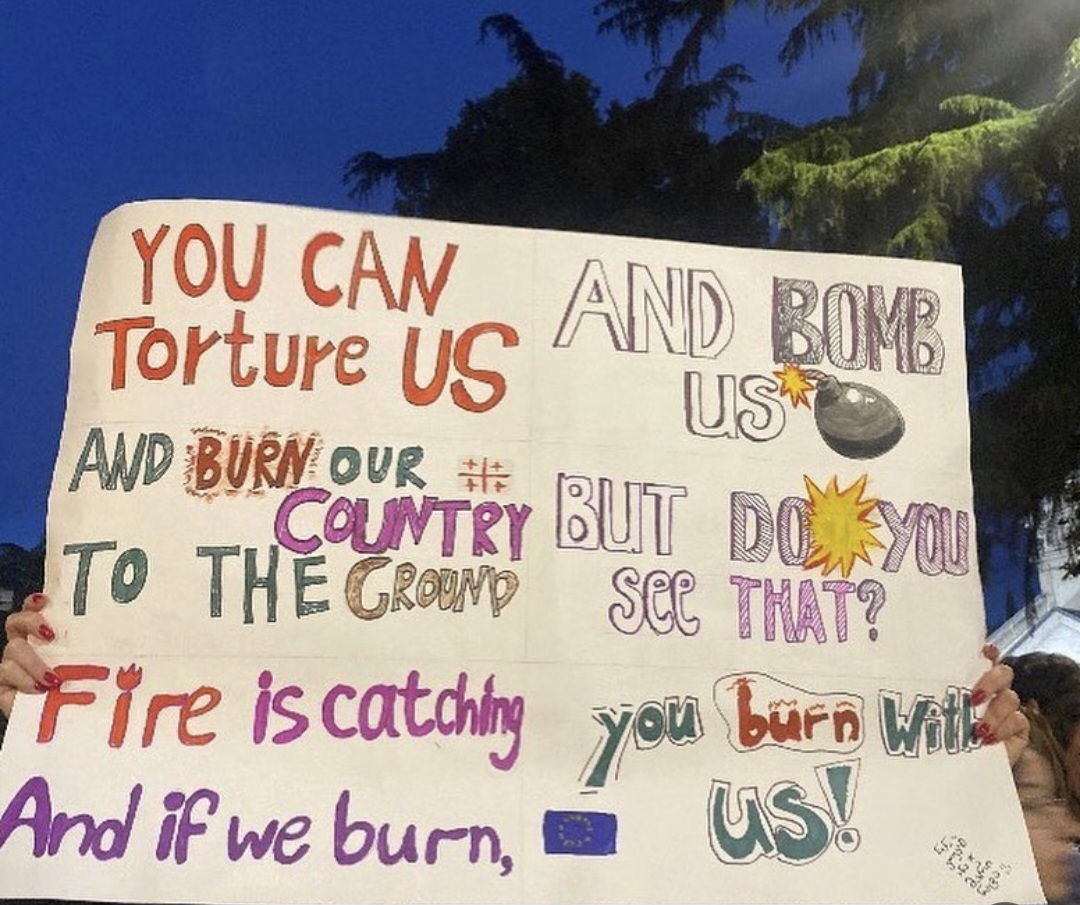 YOU CAN
Torture US
AND BOMB
US
AND BURN OUR
COUNTRY
TO THE GROUND
BUT DO YOU
see THAT?
Fire is catching
And if we burn,
you burn With
us!